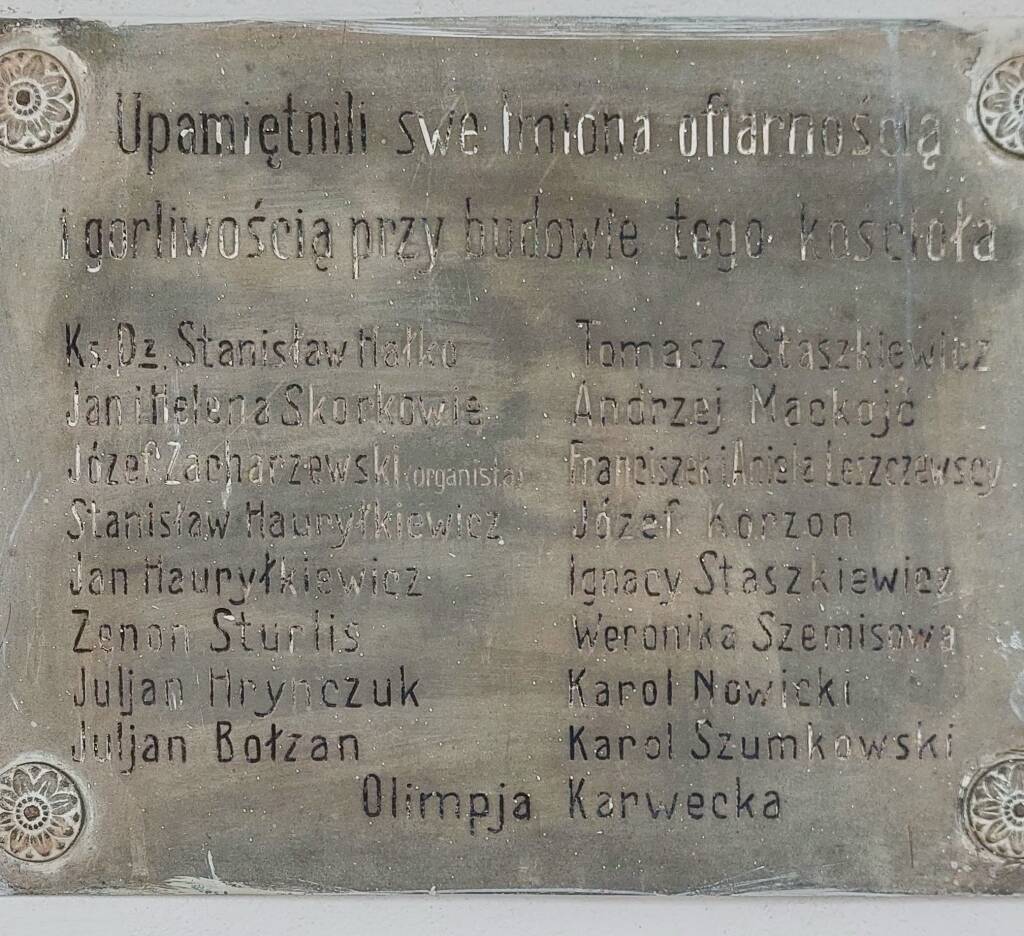 Upamiętnili swe Imiona ofiarnością
i gorliwością przy budowie tego kościoła
Ks. Dz. Stanisław Hałko
Jan i Helena Skorkowie
Józef Zacharzewski (organista)
Stanisław Hauryłkiewicz
Jan Hauryłkiewicz
Zenon Sturlis
Juljan Hrynczuk
Juljan Bołzan
Tomasz Staszkiewicz
Andrzej Mackojć
Franciszek i Aniela Leszczewscy
Józef Korzon
Ignacy Staszkiewicz
Weronika Szemisowa
Karol Nowicki
Karol Szumkowski
Olimpja Karwecka